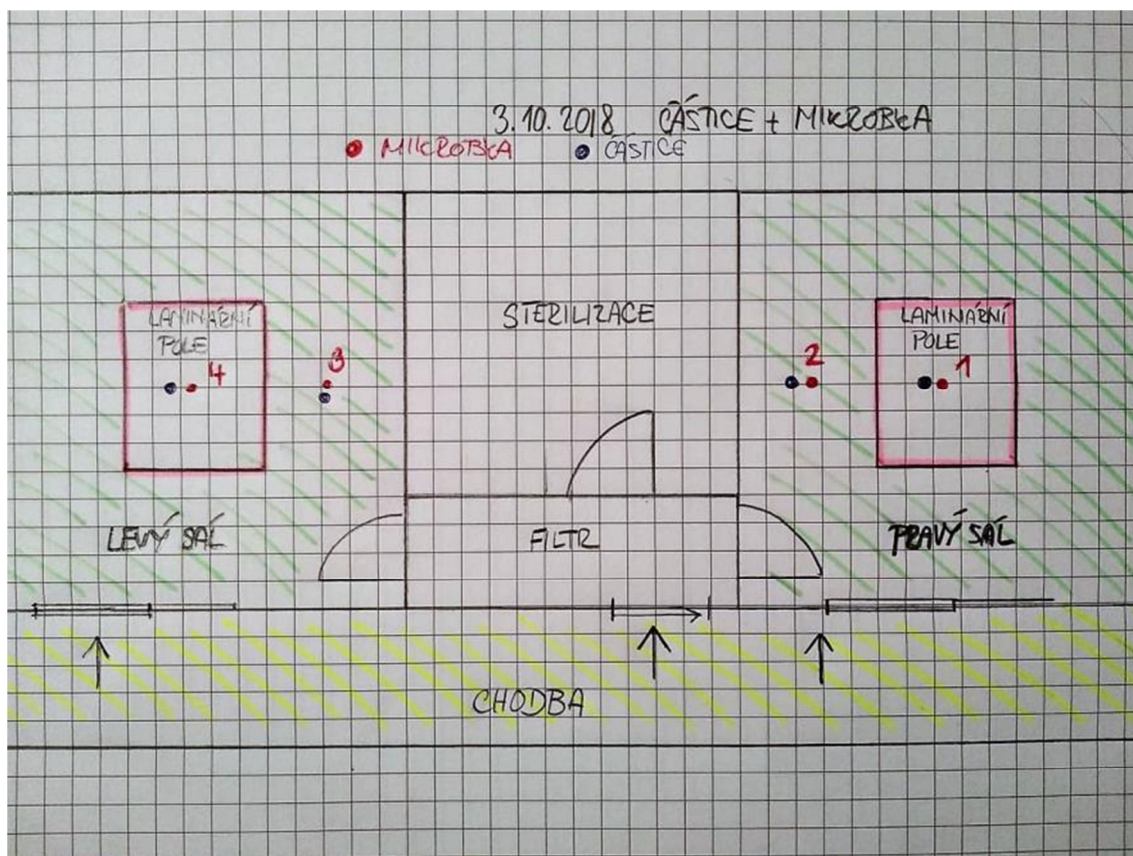 3.10.2018 ČÁSTICE + MIKROBKA
MIKROBKA ČÁSTICE
LAMINÁRNÍ
POLE
4
3
STERILIZACE
2
LAMINÁRNÍ
POLE
1
LEVÝ SÁL
FILTR
PRAVÝ SÁL
CHODBA